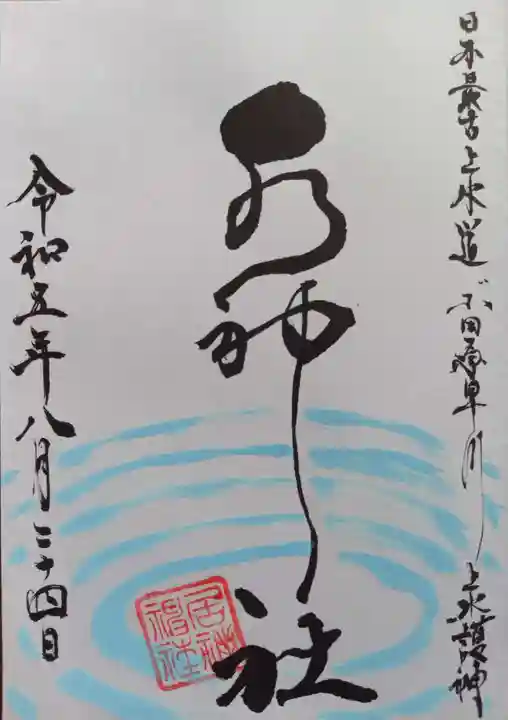 日本最古上水道 小田原早川上水護神
水神社
居神神社
令和五年八月二十四日